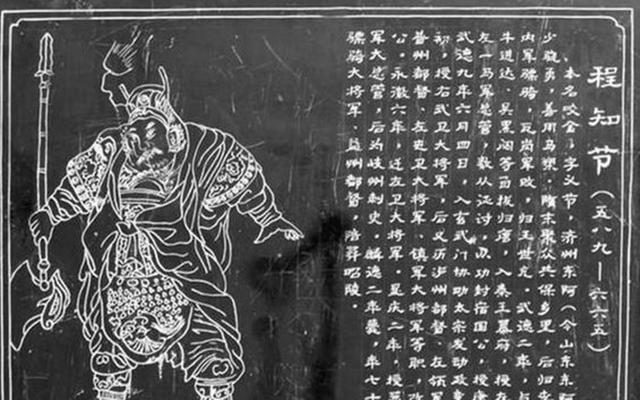 程知节（五八九—六六五）
、本名咬金，字义节，济州东阿（今山东东阿
少骁勇，善用马槊。隋末聚众共保乡里，后归李
内军骠骑，瓦岗军败，归王世充。武德二年，与
牛进达、吴黑闼等回拔归唐，入秦王幕府，授左
左一马军总管，数从征讨，以功封宿国公，授康
武德九年六月四日，入玄武门协助太宗发动政变
初，授右武卫大将军，后又历泸州都督、左领军
普州都督、左屯卫大将军、镇军大将军等职，改
公。永徽六年，迁左卫大将军。显庆二年，授葱
军大总管，后为岐州刺史。麟德二年薨，年七十
骠骑大将军、益州都督，陪葬昭陵。